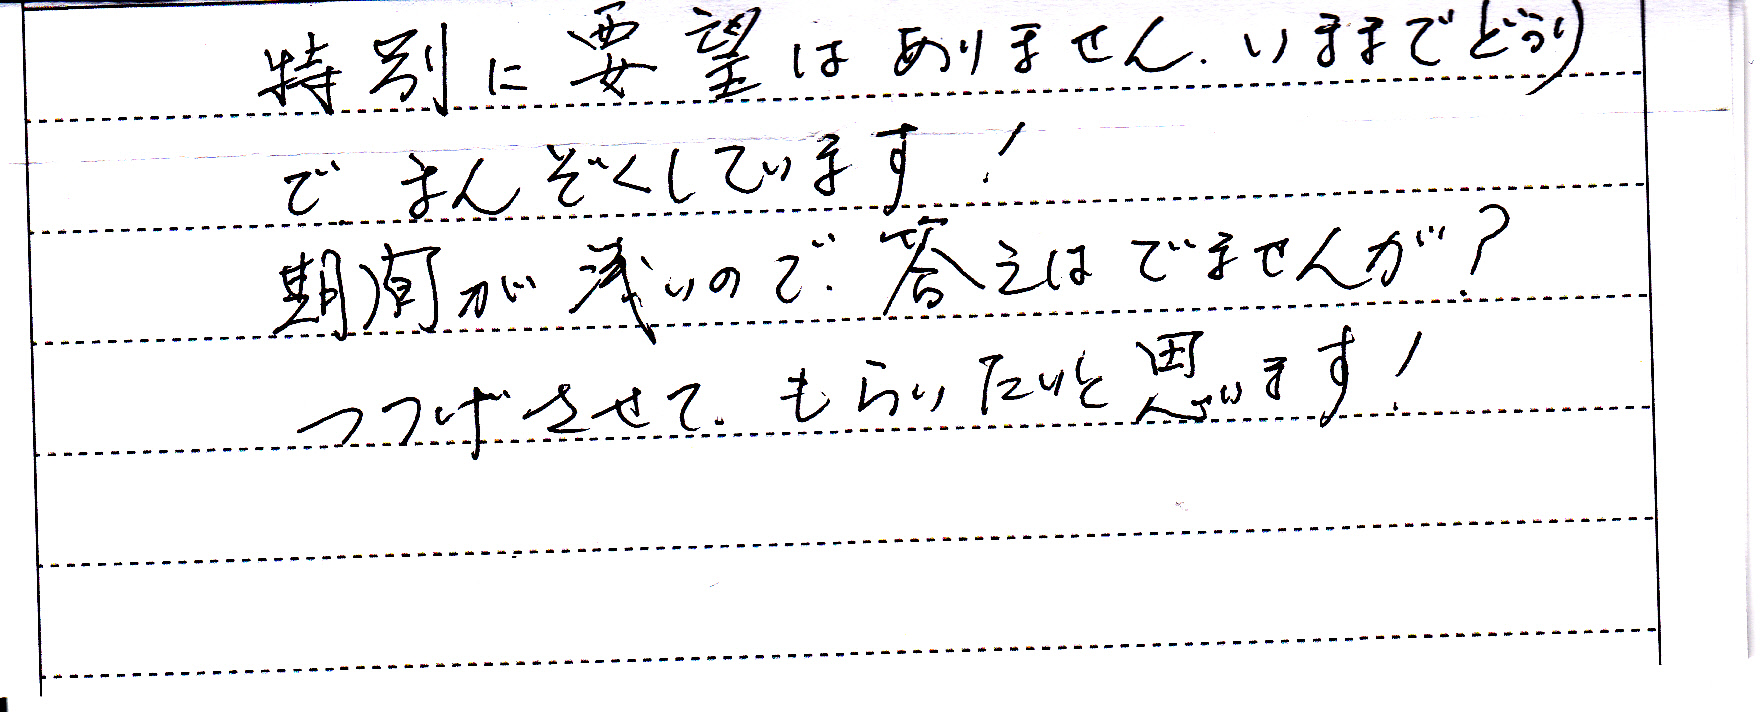 特別に要望はありません.いままでどうり
で まんぞくしています!
期間が浅いので.答えはでませんが?
つつげさせて.もらいたいと思います!